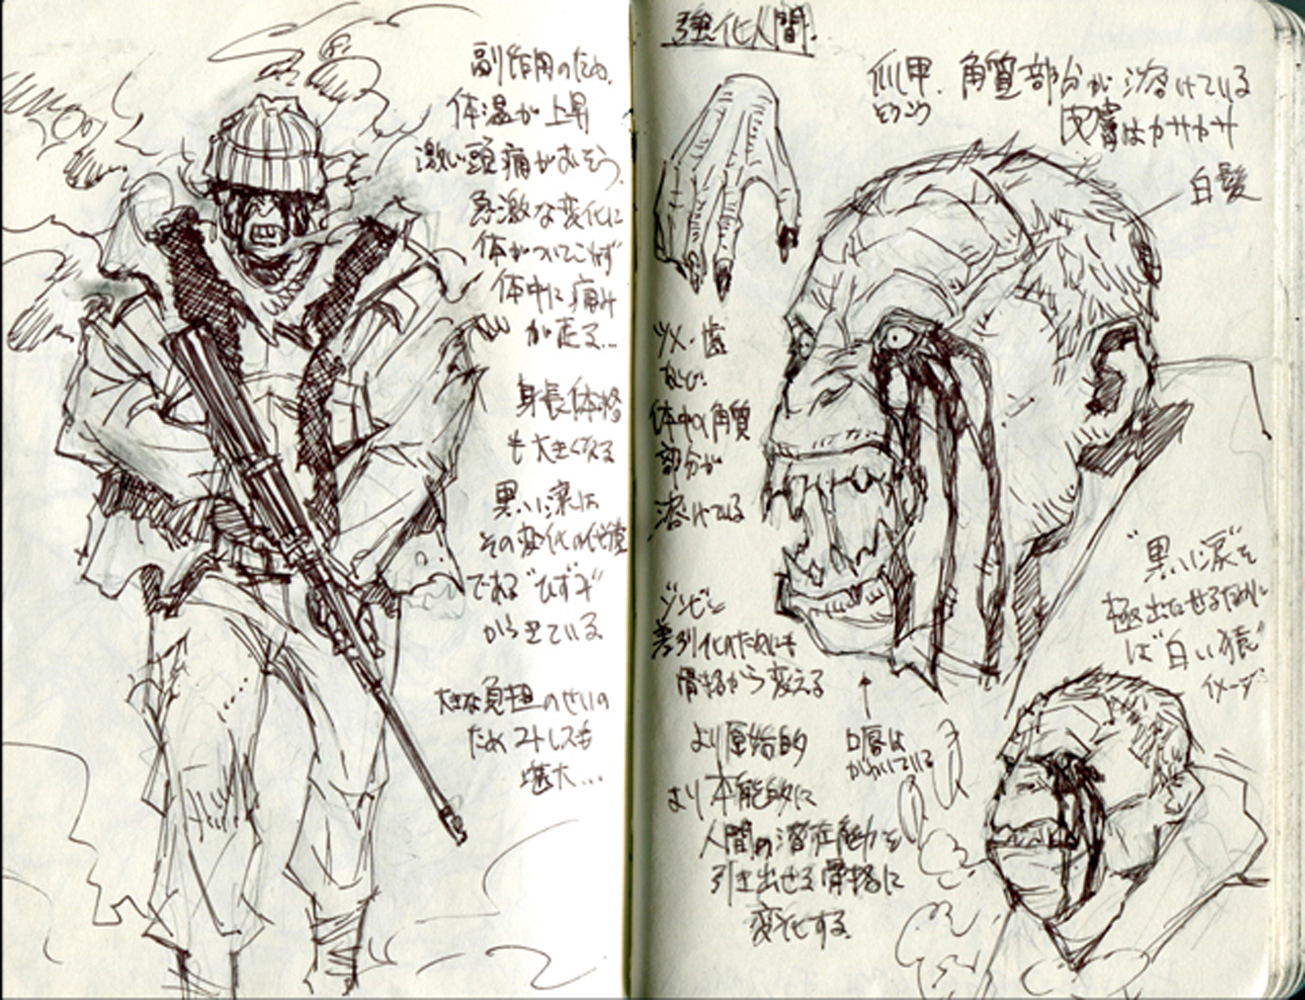 副作用のため、
体温が上昇
激しい頭痛がおそう。
急激な変化に
体がついてこれず
体中に痛み
が走る…
身長体格
も大きくなる
黒い涙は
その変化の代償
である"ひずみ"
から出ている
大きな負担のせいの
ためストレスも
甚大…
強化人間
爪甲、角質部分が溶けている
そうこう
皮膚はカサカサ
白髪
ツメ・歯
など
体中の角質
部分が
溶けている
ゾンビと
差別化のためにも
骨格から変える
より原始的
より本能的に
人間の潜在能力を
引き出せる骨格に
変化する。
口唇は
かわいている
"黒い涙"を
は"白い猿"
イメージ